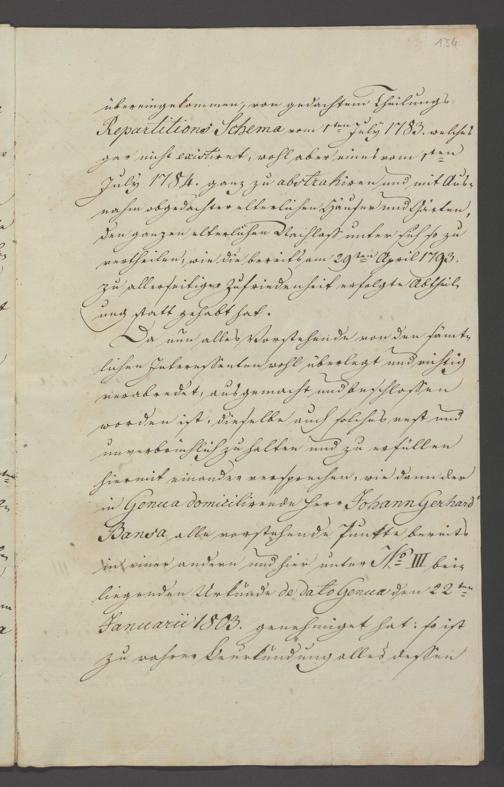 134
übereingekommen, von gedachtem Theilungs-
Repartitions Schema vom 1ten July 1783. welches
gar nicht existiret, wohl aber eines vom 1ten
July 1784. ganz zu abstrahiren und mit Aus-
nahm obgedachter elterlichen Häuser und Gärten,
den ganzen elterlichen Nachlass unter sich so zu
vertheilen, wie die bereits am 29ten April 1793.
zu allerseitiger Zufriedenheit erfolgte Abtheil-
ung statt gehabt hat.
Da nun alles Vorstehende von den sämt-
lichen Interessenten wohl überlegt und richtig
verabredet, ausgemacht und beschlossen
worden ist, dieselbe auch solches vest und
unverbrüchlich zu halten und zu erfüllen
hiermit einander versprechen, wie dann der
in Genua domicilirende Herr Johann Gerhard
Bansa alle vorstehende Punkte bereits
in einer andern und hier unter No III bei-
liegenden Urkunde de dato Genua den 22ten
Januarii 1803. genehmiget hat: so ist
zu wahrer Beurkundung alles dessen